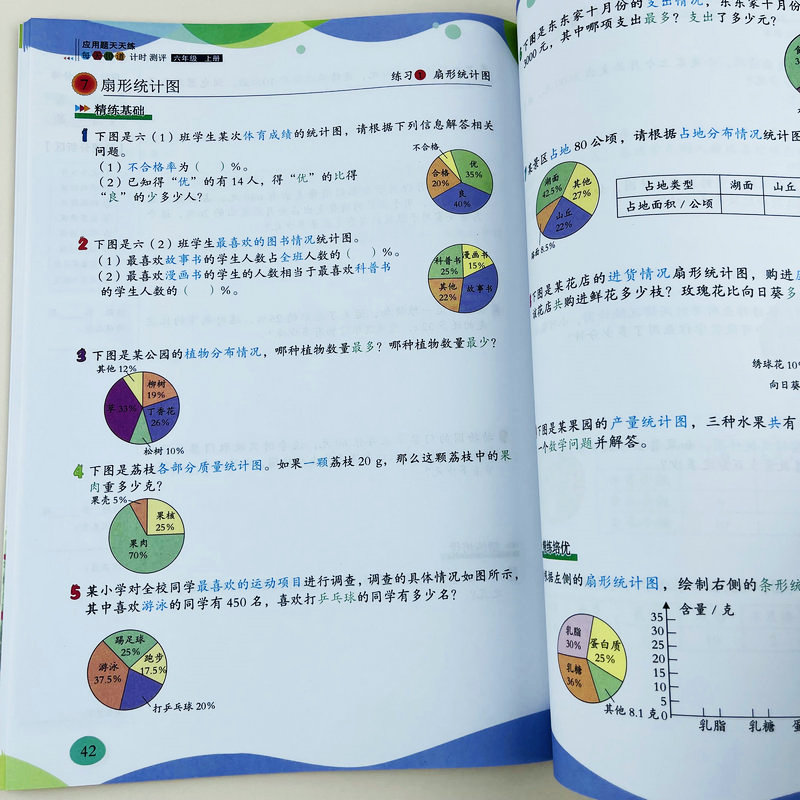 应用题天天练
每日一道 计时 测评 六年级 上册
7 扇形统计图
练习1 扇形统计图
精练基础
1 下图是六（1）班学生某次体育成绩的统计图，请根据下列信息解答相关
问题。
（1）不合格率为（ ）%。
（2）已知得“优”的有14人，得“优”的比得
“良”的少多少人？
不合格
优
35%
合格
20%
良
40%
2 下图是六（2）班学生最喜欢的图书情况统计图。
（1）最喜欢故事书的学生人数占全班人数的（ ）%。
（2）最喜欢漫画书的学生的人数相当于最喜欢科普书
的学生人数的（ ）%。
科普书
25%
漫画书
15%
其他
22%
故事书
3 下图是某公园的植物分布情况，哪种植物数量最多？哪种植物数量最少？
其他 12%
柳树
19%
草 33%
丁香花
26%
松树 10%
4 下图是荔枝各部分质量统计图。如果一颗荔枝 20 g，那么这颗荔枝中的果
肉重多少克？
果壳 5%
果核
25%
果肉
70%
5 某小学对全校同学最喜欢的运动项目进行调查，调查的具体情况如图所示，
其中喜欢游泳的同学有 450 名，喜欢打乒乓球的同学有多少名？
踢足球
25%
跑步
17.5%
游泳
37.5%
打乒乓球 20%
42
下图是东东家十月份的支出情况，东东家十月
3000 元，其中哪项支出最多？支出了多少元？
景区占地 80 公顷，请根据占地分布情况统计图
湖面
42.5%
其他
27%
山丘
22%
8.5%
占地类型 湖面 山丘
占地面积 / 公顷
下图是某花店的进货情况扇形统计图，购进
该花店共购进鲜花多少枝？玫瑰花比向日葵多
绣球花 10%
向日葵
下图是某果园的产量统计图，三种水果共有
一个数学问题并解答。
练培优
据左侧的扇形统计图，绘制右侧的条形统
乳脂
30%
蛋白质
25%
乳糖
36%
其他 8.1 克
含量 / 克
35
30
25
20
15
10
5
0
乳脂 乳糖 蛋